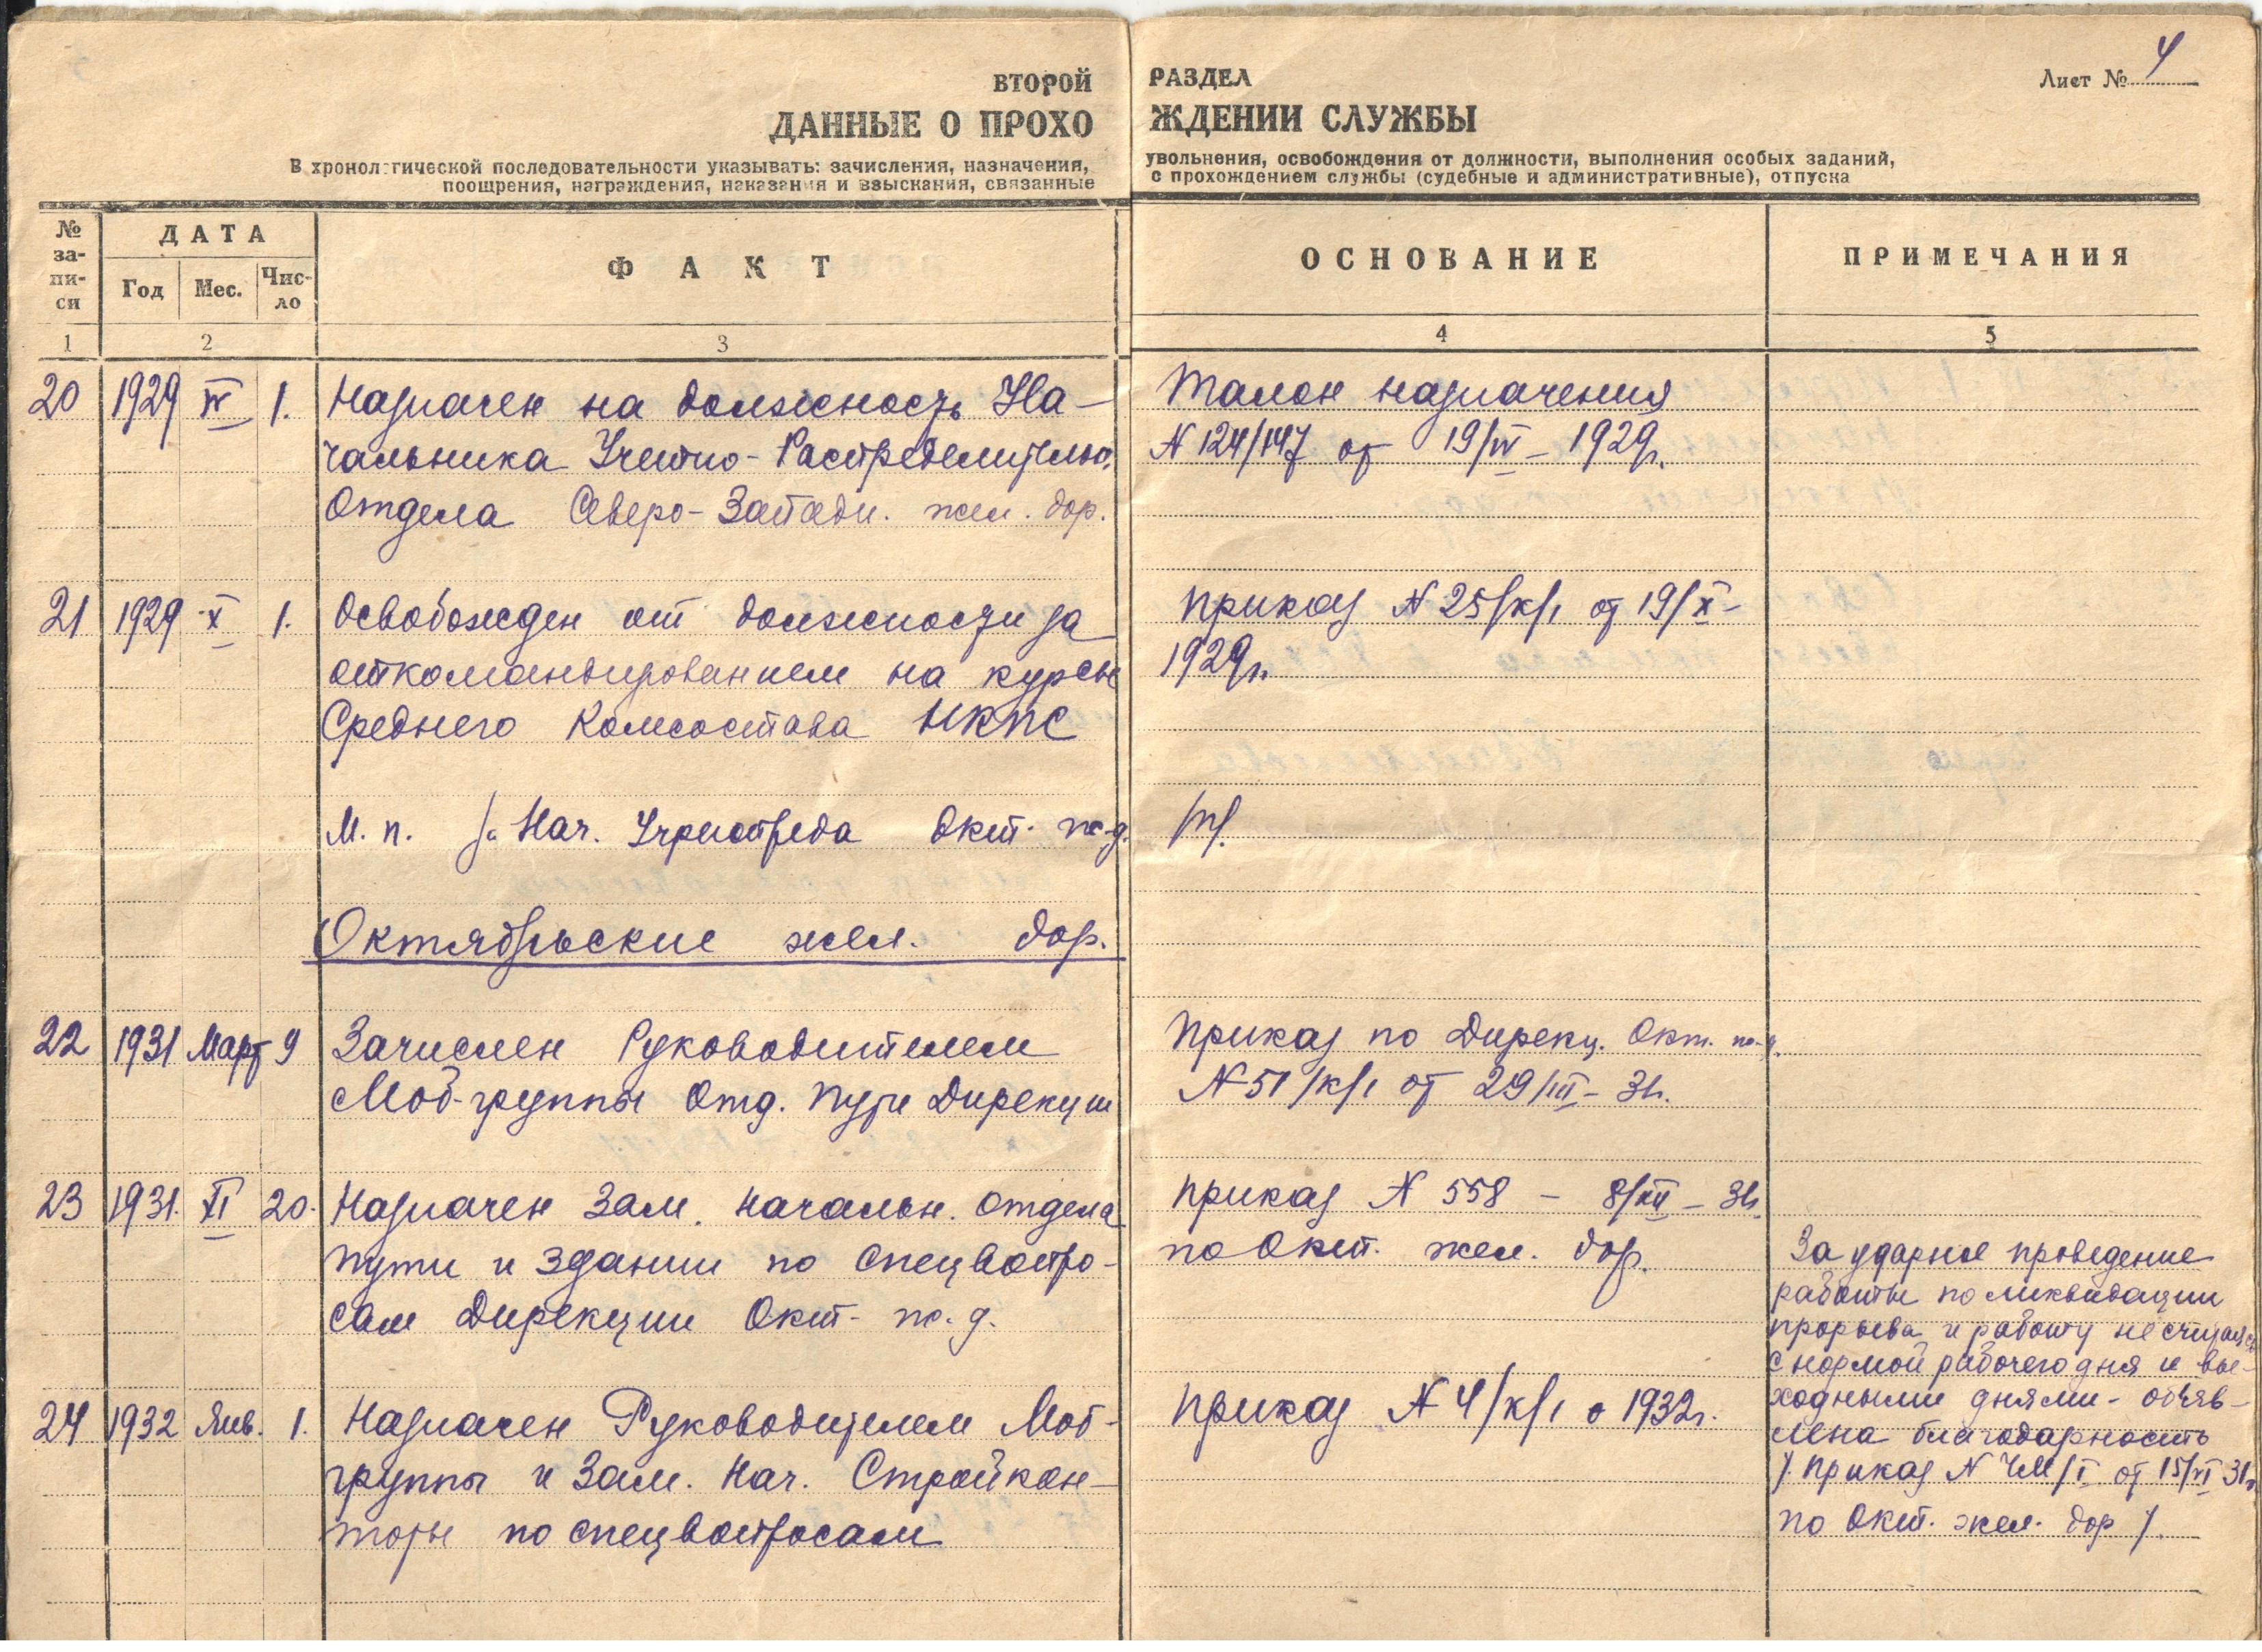 ВТОРОЙ РАЗДЕЛ
Лист № 4
ДАННЫЕ О ПРОХОЖДЕНИИ СЛУЖБЫ
В хронологической последовательности указывать: зачисления, назначения, увольнения, освобождения от должности, выполнения особых заданий,
поощрения, награждения, наказания и взыскания, связанные с прохождением службы (судебные и административные), отпуска
№ за-пи-си
ДАТА
Год Мес. Чис-ло
ФАКТ
ОСНОВАНИЕ
ПРИМЕЧАНИЯ
1 2 3 4 5
20 1929 IV 1. Назначен на должность На-
чальника Учетно-Распределительн.
Отдела Северо-Западн. жел. дор.
Талон назначения
N 124/147 от 19/IV – 1929г.
21 1929 X 1. Освобожден от должности за
откомандированием на курсы
Среднего Комсостава НКПС
приказ N 25/к/1 от 19/X –
1929г.
М. п. Нач. Окт. ж.д.
Октябрьские жел. дор.
22 1931 Март 9 Зачислен Руководителем
Моб-группы Отд. пути Дирекции
Приказ по Дирекц. Окт. ж.д.
N 51/к/1 от 29/III – 31г.
23 1931. XI 20. Назначен Зам. Начальн. Отдела
пути и здании по спецвопро-
сам Дирекции Окт. ж. д.
приказ N 558 – 8/XII – 31г.
по Окт. жел. дор.
За ударное проведение
работы по ликвидации
прорыва и работу не считаясь
с нормой рабочего дня и вы-
ходными днями – объяв-
лена благодарность
/. приказ N ЧМ/I от 15/XI 31г.
по Окт. жел. дор /.
24 1932 Янв. 1. Назначен Руководителем Моб-
группы и Зам. Нач. Стройкон-
торы по спецвопросам
приказ N 4/к/1 о 1932г.